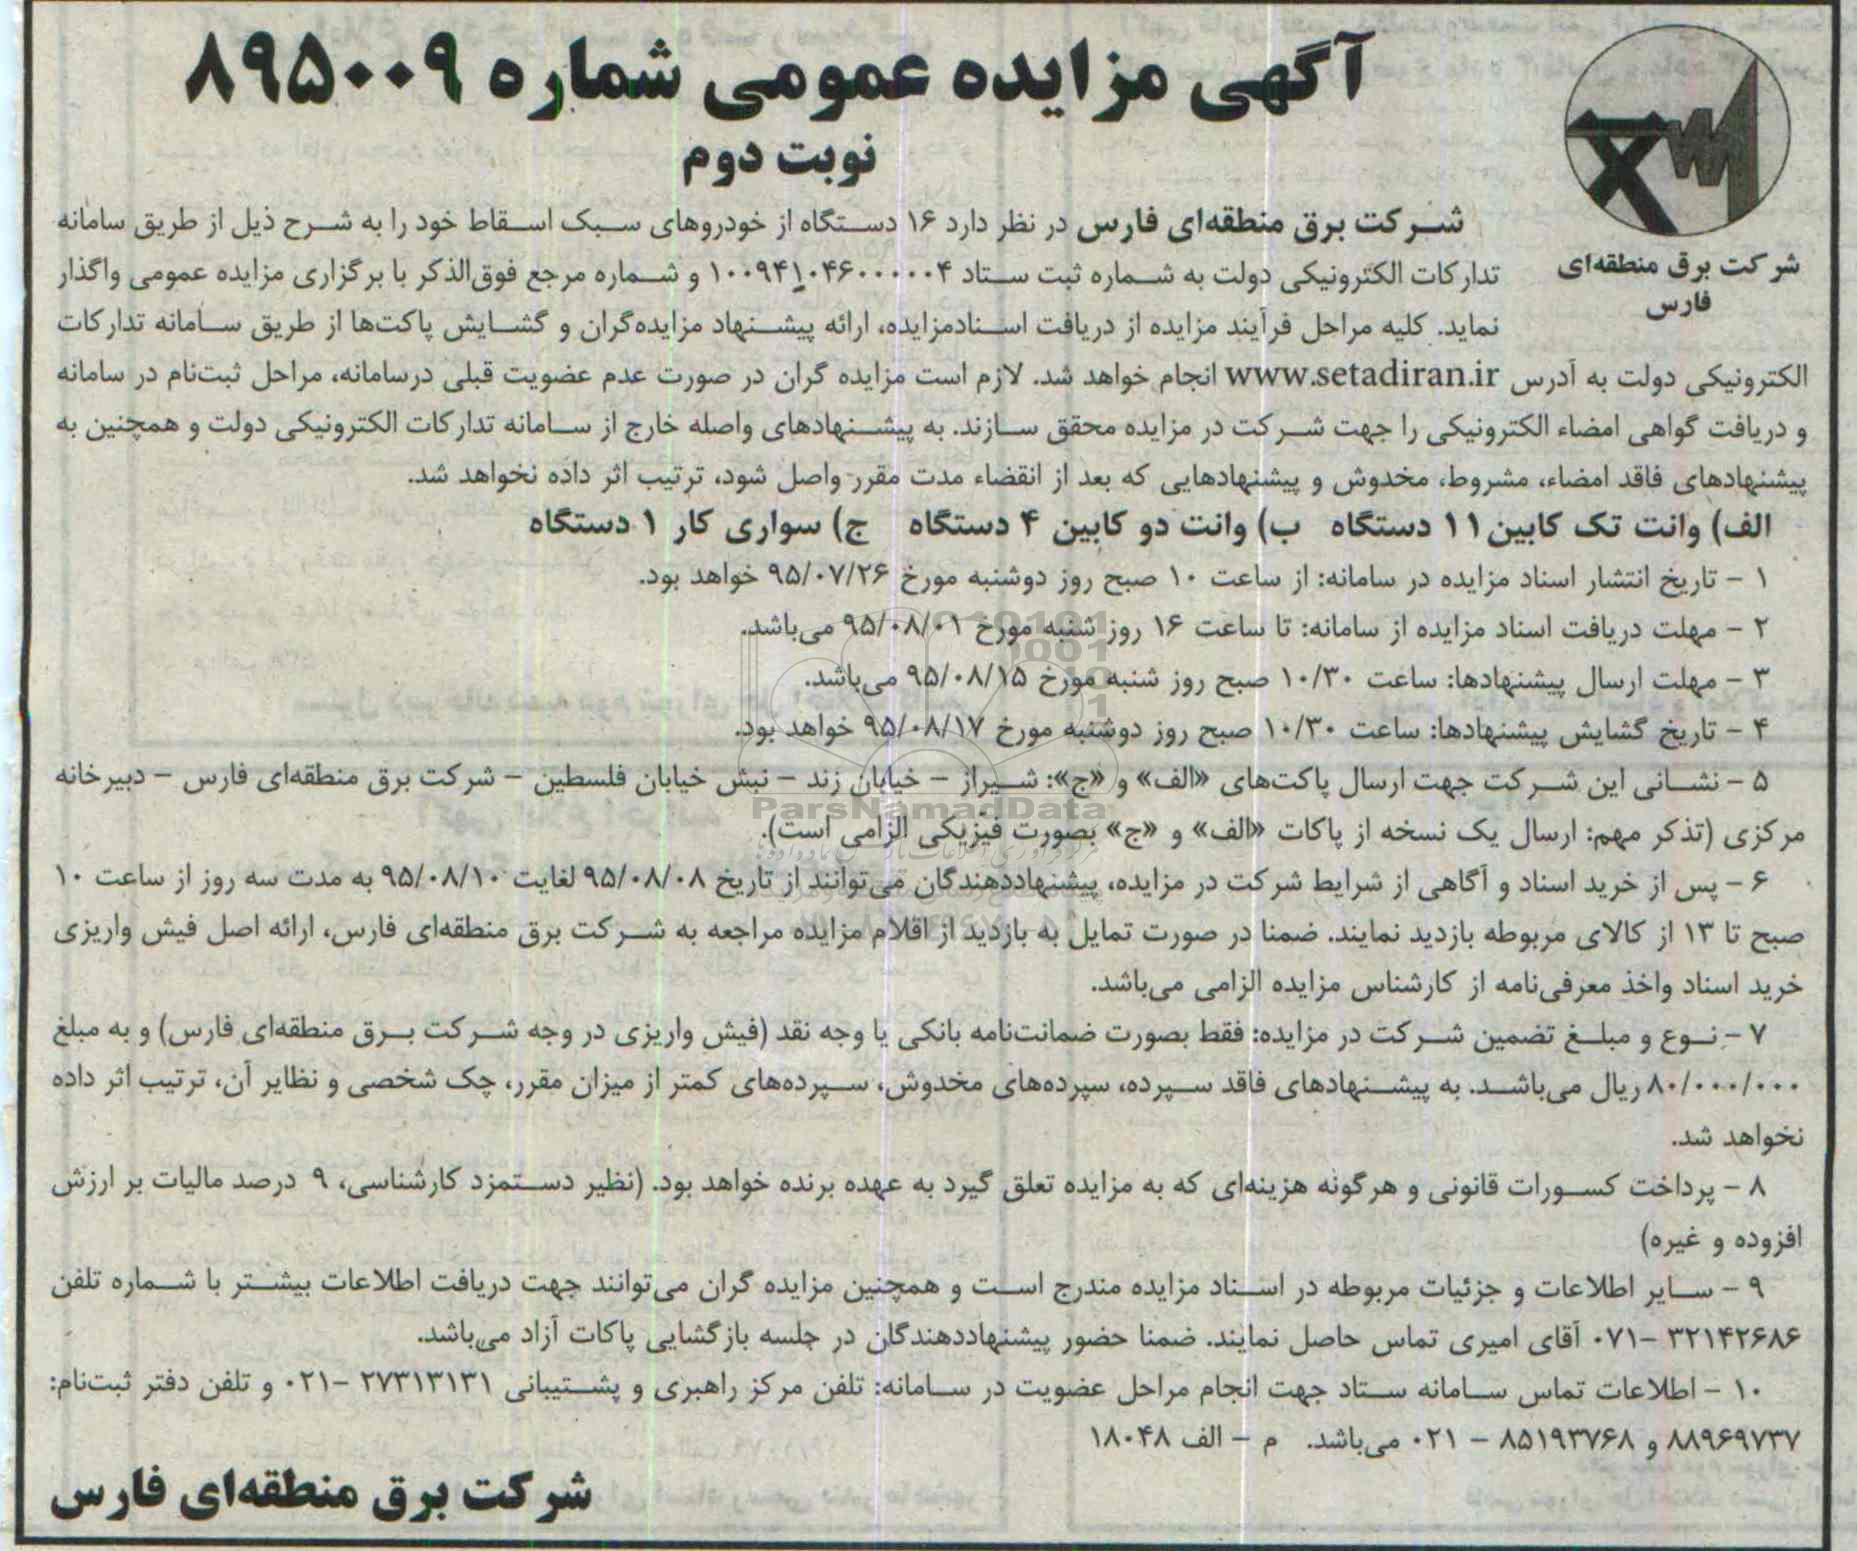 آگهی مزایده عمومی شماره ۸۹۵۰۰۹
نوبت دوم
شرکت برق منطقه‌ای
فارس
شرکت برق منطقه‌ای فارس در نظر دارد ۱۶ دستگاه از خودروهای سبک اسقاط خود را به شرح ذیل از طریق سامانه
تدارکات الکترونیکی دولت به شماره ثبت ستاد ۱۰۰۹۴۱۰۴۶۰۰۰۰۰۴ و شماره مرجع فوق‌الذکر با برگزاری مزایده عمومی واگذار
نماید. کلیه مراحل فرآیند مزایده از دریافت اسنادمزایده، ارائه پیشنهاد مزایده‌گران و گشایش پاکت‌ها از طریق سامانه تدارکات
الکترونیکی دولت به آدرس www.setadiran.ir انجام خواهد شد. لازم است مزایده گران در صورت عدم عضویت قبلی درسامانه، مراحل ثبت‌نام در سامانه
و دریافت گواهی امضاء الکترونیکی را جهت شرکت در مزایده محقق سازند. به پیشنهادهای واصله خارج از سامانه تدارکات الکترونیکی دولت و همچنین به
پیشنهادهای فاقد امضاء، مشروط، مخدوش و پیشنهادهایی که بعد از انقضاء مدت مقرر واصل شود، ترتیب اثر داده نخواهد شد.
الف) وانت تک کابین ۱۱ دستگاه ب) وانت دو کابین ۴ دستگاه ج) سواری کار ۱ دستگاه
۱ - تاریخ انتشار اسناد مزایده در سامانه: از ساعت ۱۰ صبح روز دوشنبه مورخ ۹۵/۰۷/۲۶ خواهد بود.
۲ - مهلت دریافت اسناد مزایده از سامانه: تا ساعت ۱۶ روز شنبه مورخ ۹۵/۰۸/۰۱ می‌باشد.
۳ - مهلت ارسال پیشنهادها: ساعت ۱۰/۳۰ صبح روز شنبه مورخ ۹۵/۰۸/۱۵ می‌باشد.
۴ - تاریخ گشایش پیشنهادها: ساعت ۱۰/۳۰ صبح روز دوشنبه مورخ ۹۵/۰۸/۱۷ خواهد بود.
۵ - نشانی این شرکت جهت ارسال پاکت‌های «الف» و «ج»: شیراز – خیابان زند – نبش خیابان فلسطین – شرکت برق منطقه‌ای فارس – دبیرخانه
ParsNamadData
مرکزی (تذکر مهم: ارسال یک نسخه از پاکات «الف» و «ج» بصورت فیزیکی الزامی است).
۶ - پس از خرید اسناد و آگاهی از شرایط شرکت در مزایده، پیشنهاددهندگان می‌توانند از تاریخ ۹۵/۰۸/۰۸ لغایت ۹۵/۰۸/۱۰ به مدت سه روز از ساعت ۱۰
صبح تا ۱۳ از کالای مربوطه بازدید نمایند. ضمنا در صورت تمایل به بازدید از اقلام مزایده مراجعه به شرکت برق منطقه‌ای فارس، ارائه اصل فیش واریزی
خرید اسناد واخذ معرفی‌نامه از کارشناس مزایده الزامی می‌باشد.
۷ - نوع و مبلغ تضمین شرکت در مزایده: فقط بصورت ضمانت‌نامه بانکی یا وجه نقد (فیش واریزی در وجه شرکت برق منطقه‌ای فارس) و به مبلغ
۸۰/۰۰۰/۰۰۰ ریال می‌باشد. به پیشنهادهای فاقد سپرده، سپرده‌های مخدوش، سپرده‌های کمتر از میزان مقرر، چک شخصی و نظایر آن، ترتیب اثر داده
نخواهد شد.
۸ - پرداخت کسورات قانونی و هرگونه هزینه‌ای که به مزایده تعلق گیرد به عهده برنده خواهد بود. (نظیر دستمزد کارشناسی، ۹ درصد مالیات بر ارزش
افزوده و غیره)
۹ - سایر اطلاعات و جزئیات مربوطه در اسناد مزایده مندرج است و همچنین مزایده گران می‌توانند جهت دریافت اطلاعات بیشتر با شماره تلفن
۳۲۱۴۲۶۸۶ -۰۷۱ آقای امیری تماس حاصل نمایند. ضمنا حضور پیشنهاددهندگان در جلسه بازگشایی پاکات آزاد می‌باشد.
۱۰ - اطلاعات تماس سامانه ستاد جهت انجام مراحل عضویت در سامانه: تلفن مرکز راهبری و پشتیبانی ۲۷۳۱۳۱۳۱ -۰۲۱ و تلفن دفتر ثبت‌نام:
۸۸۹۶۹۷۳۷ و ۸۵۱۹۳۷۶۸ - ۰۲۱ می‌باشد. م – الف ۱۸۰۴۸
شرکت برق منطقه‌ای فارس